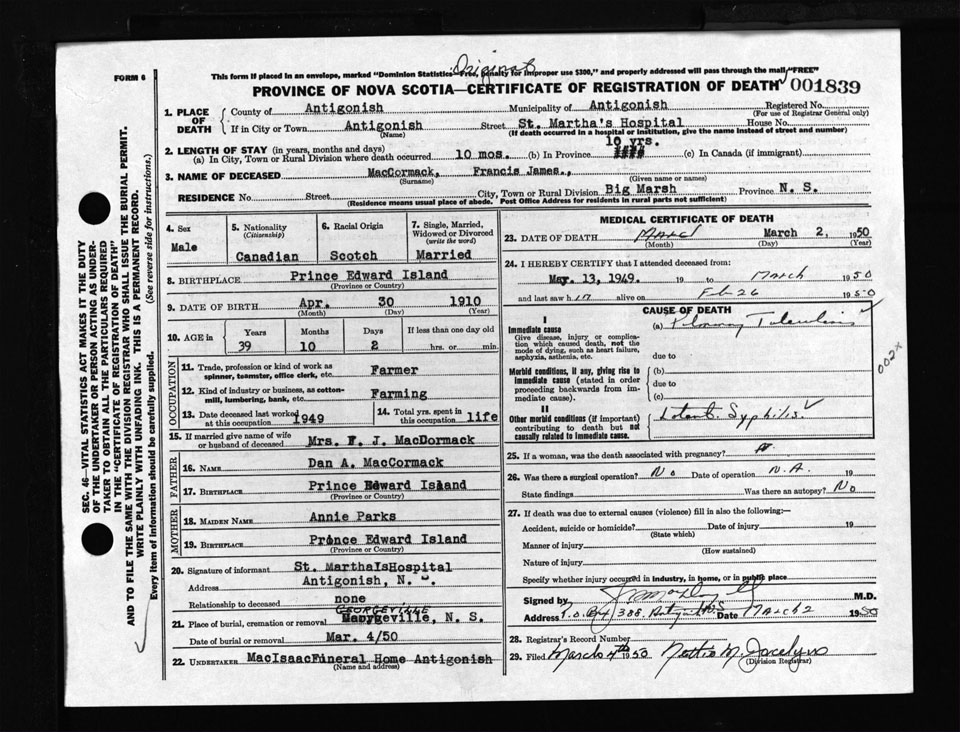 Original
FORM 6
This form if placed in an envelope, marked "Dominion Statistics—Free, penalty for improper use $300," and properly addressed will pass through the mail "FREE"
PROVINCE OF NOVA SCOTIA—CERTIFICATE OF REGISTRATION OF DEATH 001839
1. PLACE OF DEATH County of Antigonish Municipality of Antigonish Registered No.
(For use of Registrar General only)
If in City or Town Antigonish Street St. Martha's Hospital House No.
(Name) (If death occurred in a hospital or institution, give the name instead of street and number)
2. LENGTH OF STAY (in years, months and days) 10 yrs.
(a) In City, Town or Rural Division where death occurred 10 mos. (b) In Province (c) In Canada (if immigrant)
3. NAME OF DECEASED MacCormack, Francis James.,
(Surname) (Given name or names)
RESIDENCE No. Street City, Town or Rural Division Big Marsh Province N. S.
(Residence means usual place of abode. Post Office Address for residents in rural parts not sufficient)
4. Sex Male
5. Nationality (Citizenship) Canadian
6. Racial Origin Scotch
7. Single, Married, Widowed or Divorced (write the word) Married
8. BIRTHPLACE Prince Edward Island
(Province or Country)
9. DATE OF BIRTH Apr. 30 1910
(Month) (Day) (Year)
10. AGE in Years Months Days If less than one day old
39 10 2 hrs. or min.
OCCUPATION
11. Trade, profession or kind of work as spinner, teamster, office clerk, etc. Farmer
12. Kind of industry or business, as cotton-mill, lumbering, bank, etc. Farming
13. Date deceased last worked at this occupation 1949
14. Total yrs. spent in this occupation life
15. If married give name of wife or husband of deceased Mrs. F. J. MacDormack
FATHER
16. NAME Dan A. MacCormack
17. BIRTHPLACE Prince Edward Island
(Province or Country)
MOTHER
18. MAIDEN NAME Annie Parks
19. BIRTHPLACE Prince Edward Island
(Province or Country)
20. Signature of informant St. MarthaIsHospital
Address Antigonish, N.
Relationship to deceased none
GEORGEVILLE
21. Place of burial, cremation or removal N. S.
Date of burial or removal Mar. 4/50
22. UNDERTAKER MacIsaacFuneral Home Antigonish
(Name and address)
MEDICAL CERTIFICATE OF DEATH
23. DATE OF DEATH March March 2, 1950
(Month) (Day) (Year)
24. I HEREBY CERTIFY that I attended deceased from:
May. 13, 1949. 19 to March 1950
and last saw h im alive on Feb 26 1950
CAUSE OF DEATH
I
Immediate cause (a)
Give disease, injury or complication which caused death, not the mode of dying, such as heart failure, asphyxia, asthenia, etc.
due to
Morbid conditions, if any, giving rise to immediate cause (stated in order proceeding backwards from immediate cause).
(b)
due to
(c)
II
Other morbid conditions (if important) contributing to death but not causally related to immediate cause.
Latent Syphilis
002x
25. If a woman, was the death associated with pregnancy?
26. Was there a surgical operation? No Date of operation N.A. 19
State findings Was there an autopsy? No
27. If death was due to external causes (violence) fill in also the following:—
Accident, suicide or homicide? Date of injury 19
(State which)
Manner of injury
(How sustained)
Nature of injury
Specify whether injury occurred in industry, in home, or in public place
Signed by M.D.
Address P.O. Box 388, Antigonish NS Date March 2 1950
28. Registrar's Record Number
29. Filed March 4th 1950 Nettie M. Jocelyn
(Division Registrar)
SEC. 46—VITAL STATISTICS ACT MAKES IT THE DUTY
OF THE UNDERTAKER OR PERSON ACTING AS UNDER-
TAKER TO OBTAIN ALL THE PARTICULARS REQUIRED
IN THE "CERTIFICATE OF REGISTRATION OF DEATH"
AND TO FILE THE SAME WITH THE DIVISION REGISTRAR WHO SHALL ISSUE THE BURIAL PERMIT.
WRITE PLAINLY WITH UNFADING INK. THIS IS A PERMANENT RECORD.
Every item of information should be carefully supplied. (See reverse side for instructions.)